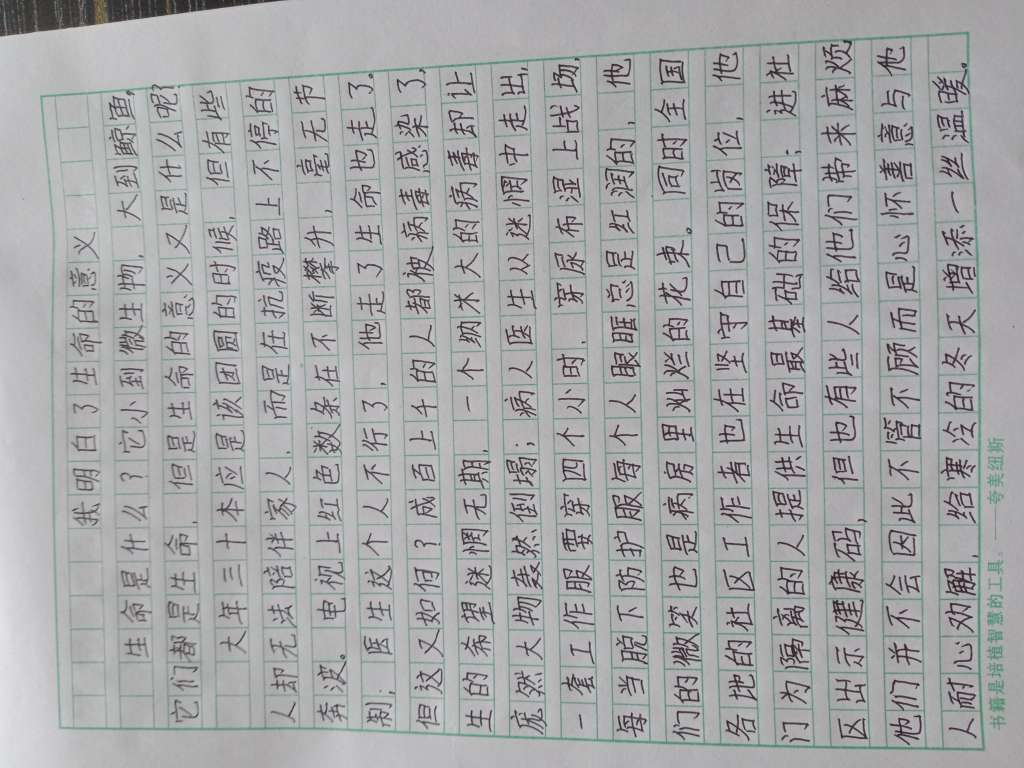 我明白了生命的意义
生命是什么？它小到微生物，大到鲸鱼。
它们都是生命，但是生命的意义又是什么呢？
大年三十本应是该团圆的时候，但有些
人却无法陪伴家人，而是在抗疫路上不停的
奔波。电视上红色数条在不断攀升，毫无节
制，医生这个人不行了，他走了生命也走了。
但这又如何？成百上千的人都被病毒感染了，
生的希望迷惘无期，一个纳米大的病毒却让
庞然大物轰然倒塌；病人医生从迷惘中走出，
一套工作服要穿四个小时，穿尿布湿上战场，
每当脱下防护服每个人眼眶总是红润的，他
们的微笑也是病房里灿烂的花束。同时全国
各地的社区工作者也在坚守自己的岗位，他
门为隔离的人提供生命最基础的保障；进社
区出示健康码，但也有些人给他们带来麻烦，
他们并不会因此不管不顾而是心怀善意与他
人耐心劝解，给寒冷的冬天增添一丝温暖。
书籍是培植智慧的工具。——夸美纽斯